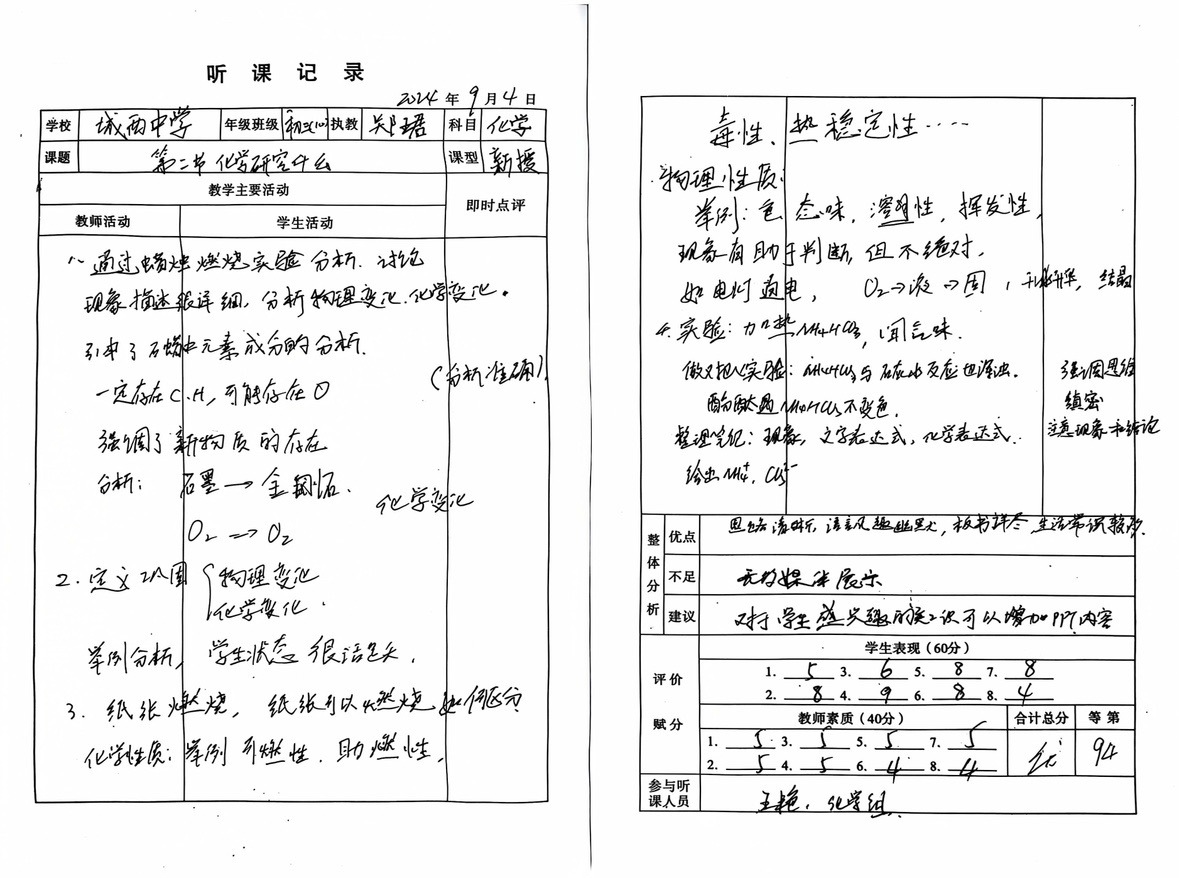 听课记录
2024年9月4日
学校 城西中学 年级班级 初三(10) 执教 郑珺 科目 化学
课题 第二节 化学研究什么 课型 新授
教学主要活动 即时点评
教师活动 学生活动
1、通过蜡烛燃烧实验分析、讨论
现象描述很详细,分析物理变化、化学变化。
引申了石蜡中元素成分的分析.
一定存在C、H,可能存在O (分析准确)
强调了新物质的存在
分析: 石墨→金刚石. 化学变化
O₂→O₂
2.定义 物理变化
化学变化.
举例分析, 学生状态很活跃.
3.纸张燃烧, 纸张可以燃烧,如何区分
化学性质:举例 可燃性.助燃性.
毒性、热稳定性····
物理性质:
举例:色、态、味,溶解性,挥发性,
现象有助于判断,但不绝对.
如电灯通电, O₂→液→固, 升华, 结晶
4.实验:加热NH₄HCO₃,闻气味.
NH₄HCO₃与石灰水反应也浑浊. 强调思维
NH₄HCO₃不变色. 缜密
整理笔记:现象,文字表达式,化学表达式. 注意现象和结论
给出NH₄⁺、CO₃²⁻
整体分析
优点 思路清晰,语言风趣幽默,板书详尽,生活常识较多.
不足 无多媒体展示
建议 对于学生感兴趣的知识可以增加PPT内容
评价赋分
学生表现(60分)
1. 5 3. 6 5. 8 7. 8
2. 8 4. 9 6. 8 8. 4
教师素质(40分) 合计总分 等第
1. 5 3. 5 5. 5 7. 5 优 94
2. 5 4. 5 6. 4 8. 4
参与听课人员 王艳、化学组.